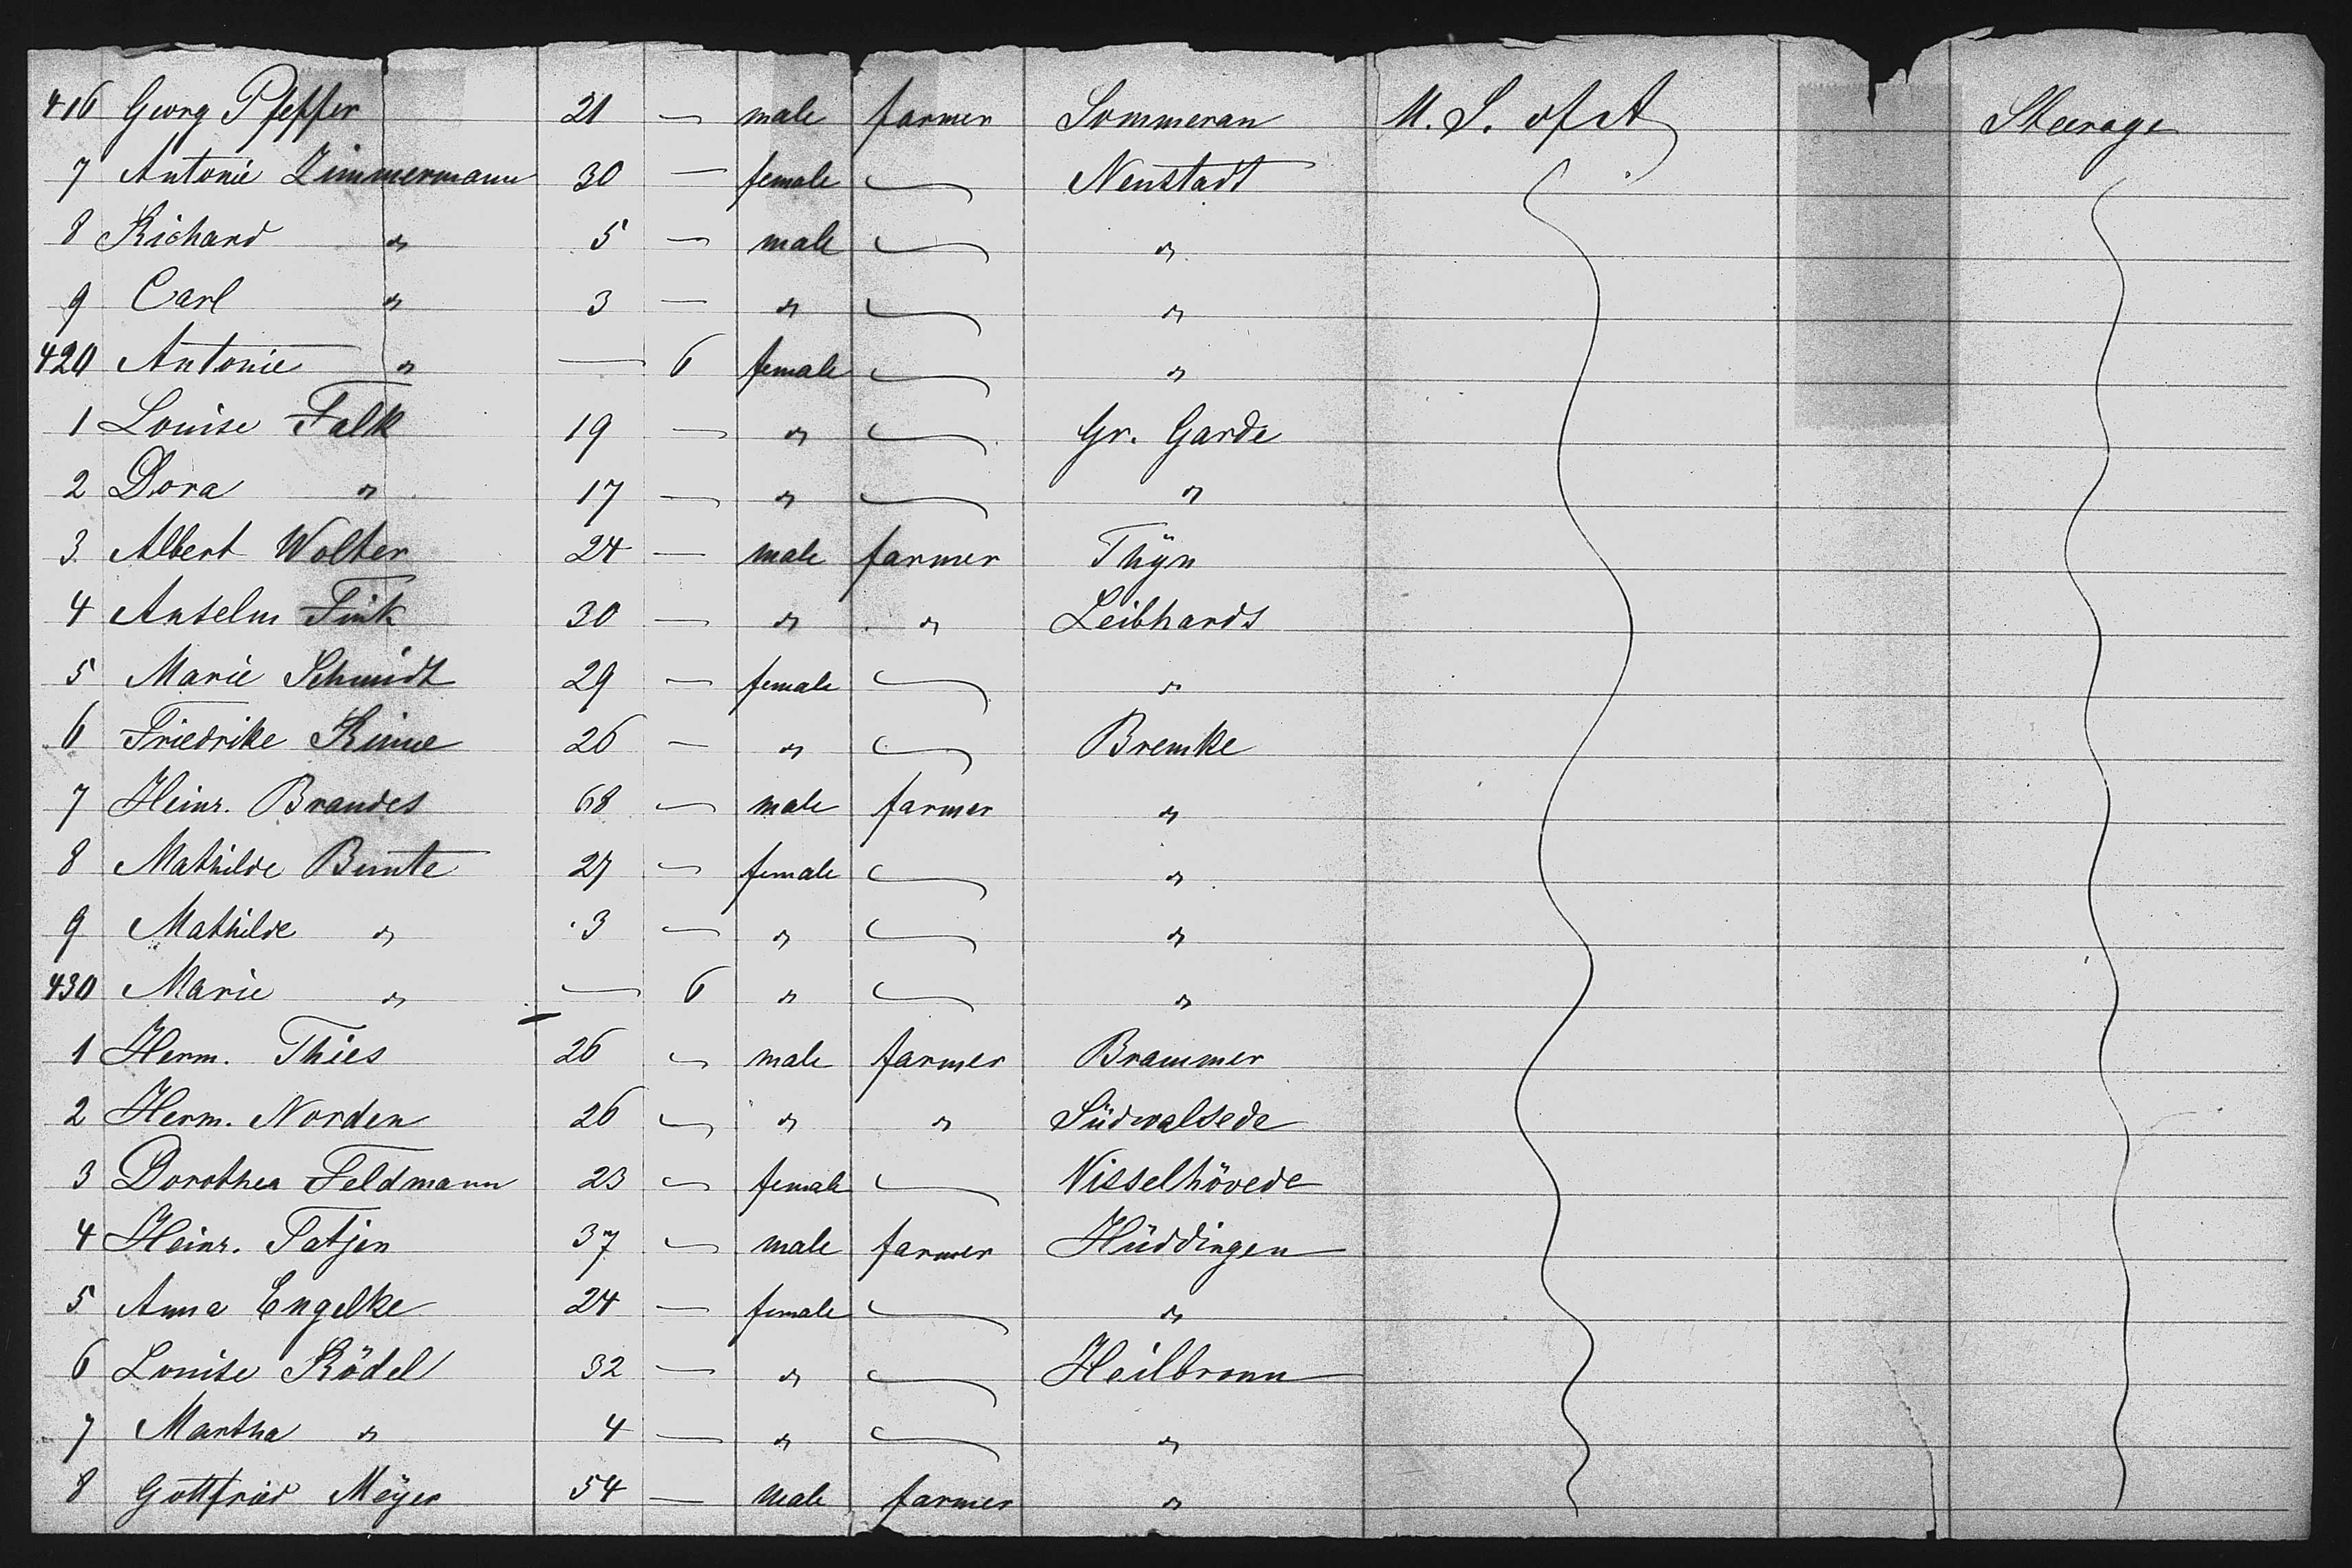 416 Georg Pfeffer 21 — male farmer Sommerau U. S. of A Steerage
7 Antonie Zimmermann 30 — female — Neustadt
8 Richard " 5 — male — "
9 Carl " 3 — " — "
420 Antonie " — 6 female — "
1 Louise Falk 19 — " — Gr. Garde
2 Dora " 17 — " — "
3 Albert Wolter 24 — male farmer Thÿn
4 Anselm Fink 30 — " " Leibhards
5 Marie Schmidt 29 — female — "
6 Friedrike Rinne 26 — " — Bremke
7 Heinr. Brandes 68 — male farmer "
8 Mathilde Bunte 27 — female — "
9 Mathilde " 3 — " — "
430 Marie " — 6 " — "
1 Herm. Thies 26 — male farmer Brammer
2 Herm. Norden 26 — " " Südwalsede
3 Dorothea Feldmann 23 — female — Visselhövede
4 Heinr. Tatjen 37 — male farmer Hüddingen
5 Anna Engelke 24 — female — "
6 Louise Rödel 32 — " — Heilbronn
7 Martha " 4 — " — "
8 Gottfried Meÿer 54 — male farmer "